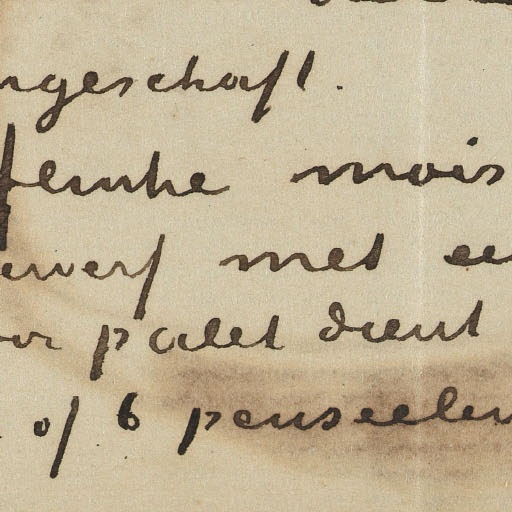 ngeschaft.
flinke mois
werf met ee
or palet dient
of 6 penseelen